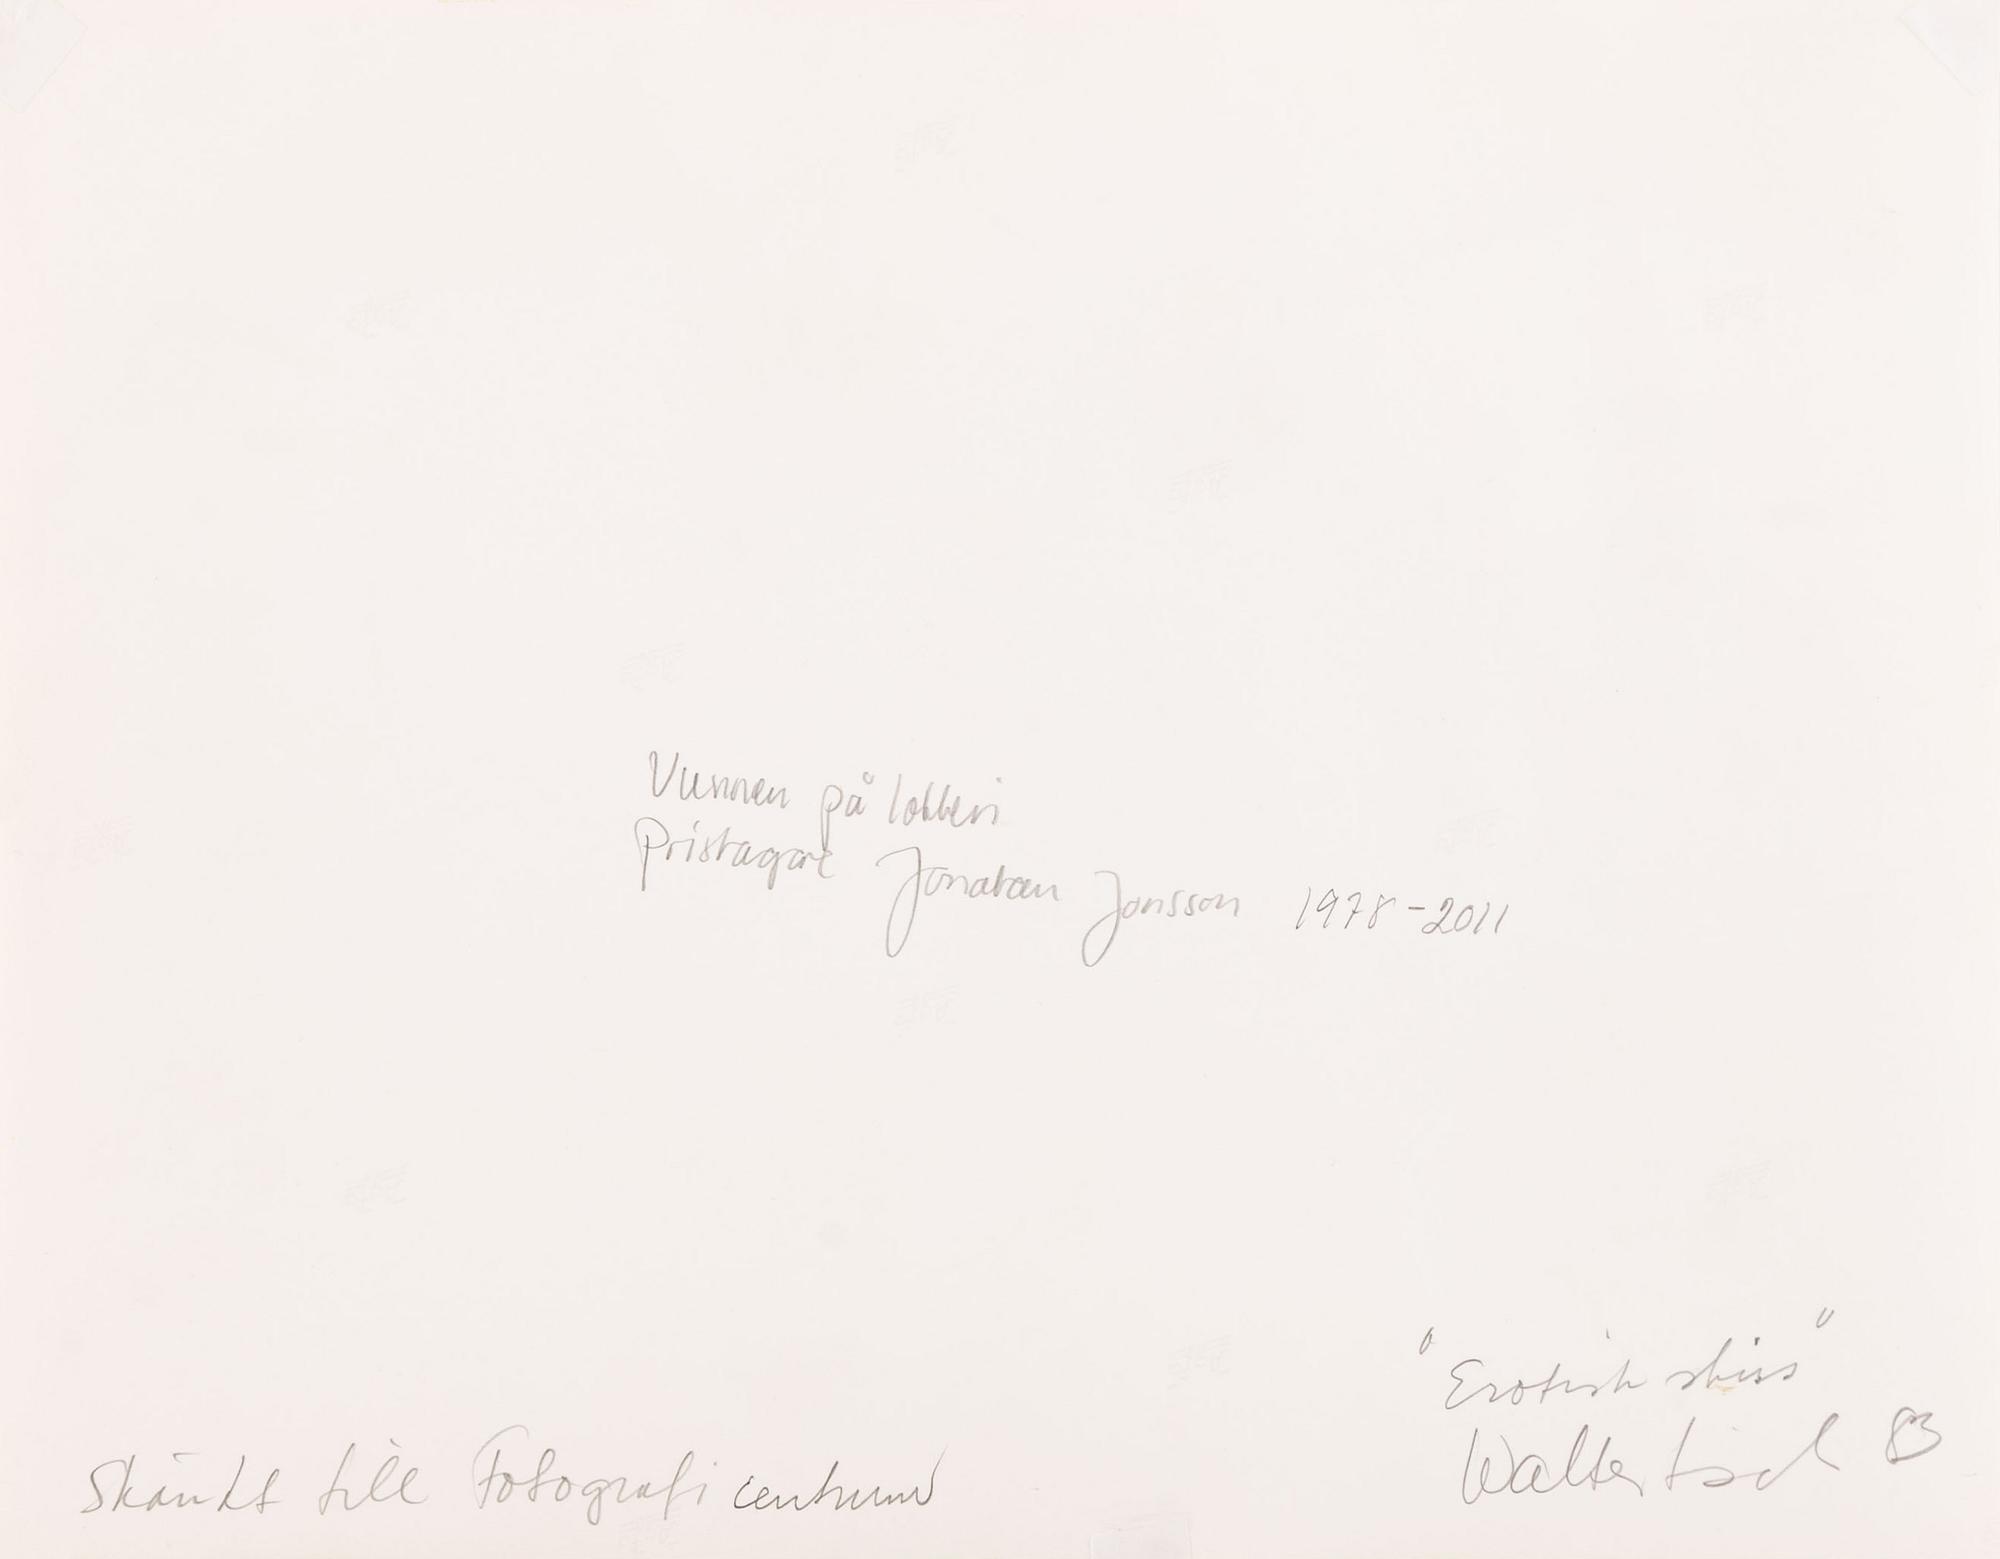 Vunnen på lotteri
Pristagare Jonatan Jonsson 1978-2011
"Erotisk skiss"
Skänkt till Fotografi centrum
Walter 83